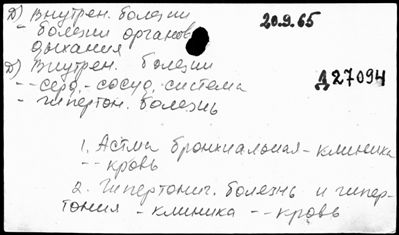 Д) Внутрен. болезни
- болезни органов
дыхания
20.9.65
Д) Внутрен. болезни
-- серд.- сосуд. система
- гипертон. болезнь
Д27094
1. Астма бронхиальная - клиника
-- кровь
2. Гипертонич. болезнь и гипер-
тония - клиника -- кровь